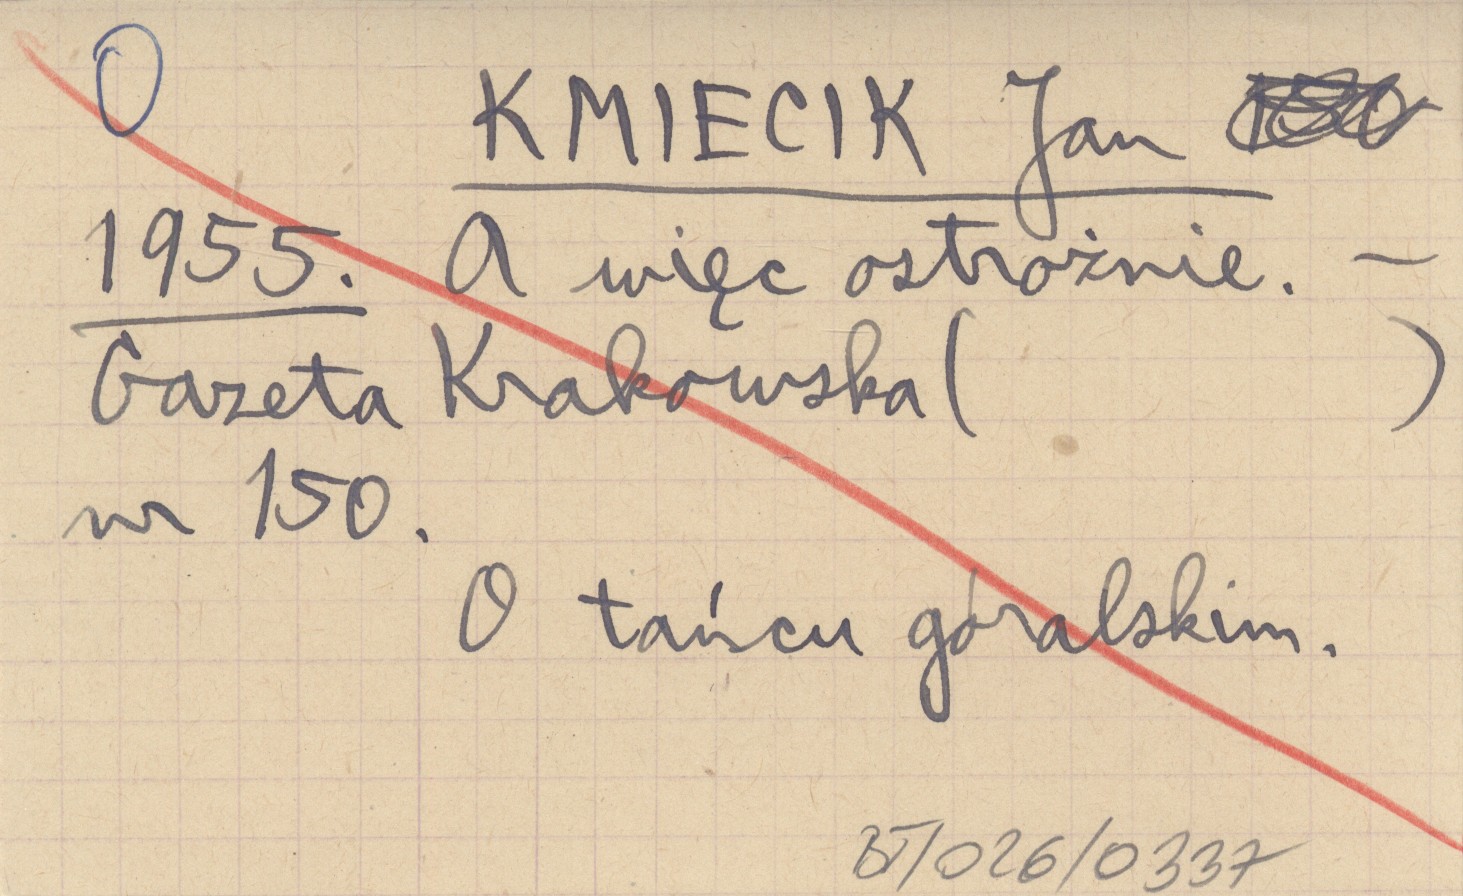 O
KMIECIK Jan
1955. A więc ostrożnie. –
Gazeta Krakowska ( )
nr 150.
O tańcu góralskim.
BT/026/0337